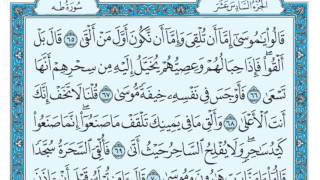 الجُزءُ السَّادِسَ عَشَرَ
سُورَةُ طه
قَالُوا۟ يَـٰمُوسَىٰٓ إِمَّآ أَن تُلْقِىَ وَإِمَّآ أَن نَّكُونَ أَوَّلَ مَنْ أَلْقَىٰ ٦٥ قَالَ بَلْ
أَلْقُوا۟ ۖ فَإِذَا حِبَالُهُمْ وَعِصِيُّهُمْ يُخَيَّلُ إِلَيْهِ مِن سِحْرِهِمْ أَنَّهَا
تَسْعَىٰ ٦٦ فَأَوْجَسَ فِى نَفْسِهِۦ خِيفَةً مُّوسَىٰ ٦٧ قُلْنَا لَا تَخَفْ إِنَّكَ
أَنتَ ٱلْأَعْلَىٰ ٦٨ وَأَلْقِ مَا فِى يَمِينِكَ تَلْقَفْ مَا صَنَعُوٓا۟ ۖ إِنَّمَا صَنَعُوا۟
كَيْدُ سَـٰحِرٍ ۖ وَلَا يُفْلِحُ ٱلسَّاحِرُ حَيْثُ أَتَىٰ ٦٩ فَأُلْقِىَ ٱلسَّحَرَةُ سُجَّدًا
قَالُوٓا۟ ءَامَنَّا بِرَبِّ هَـٰرُونَ وَمُوسَىٰ ٧٠ قَالَ ءَامَنتُمْ لَهُۥ قَبْلَ أَنْ ءَاذَنَ